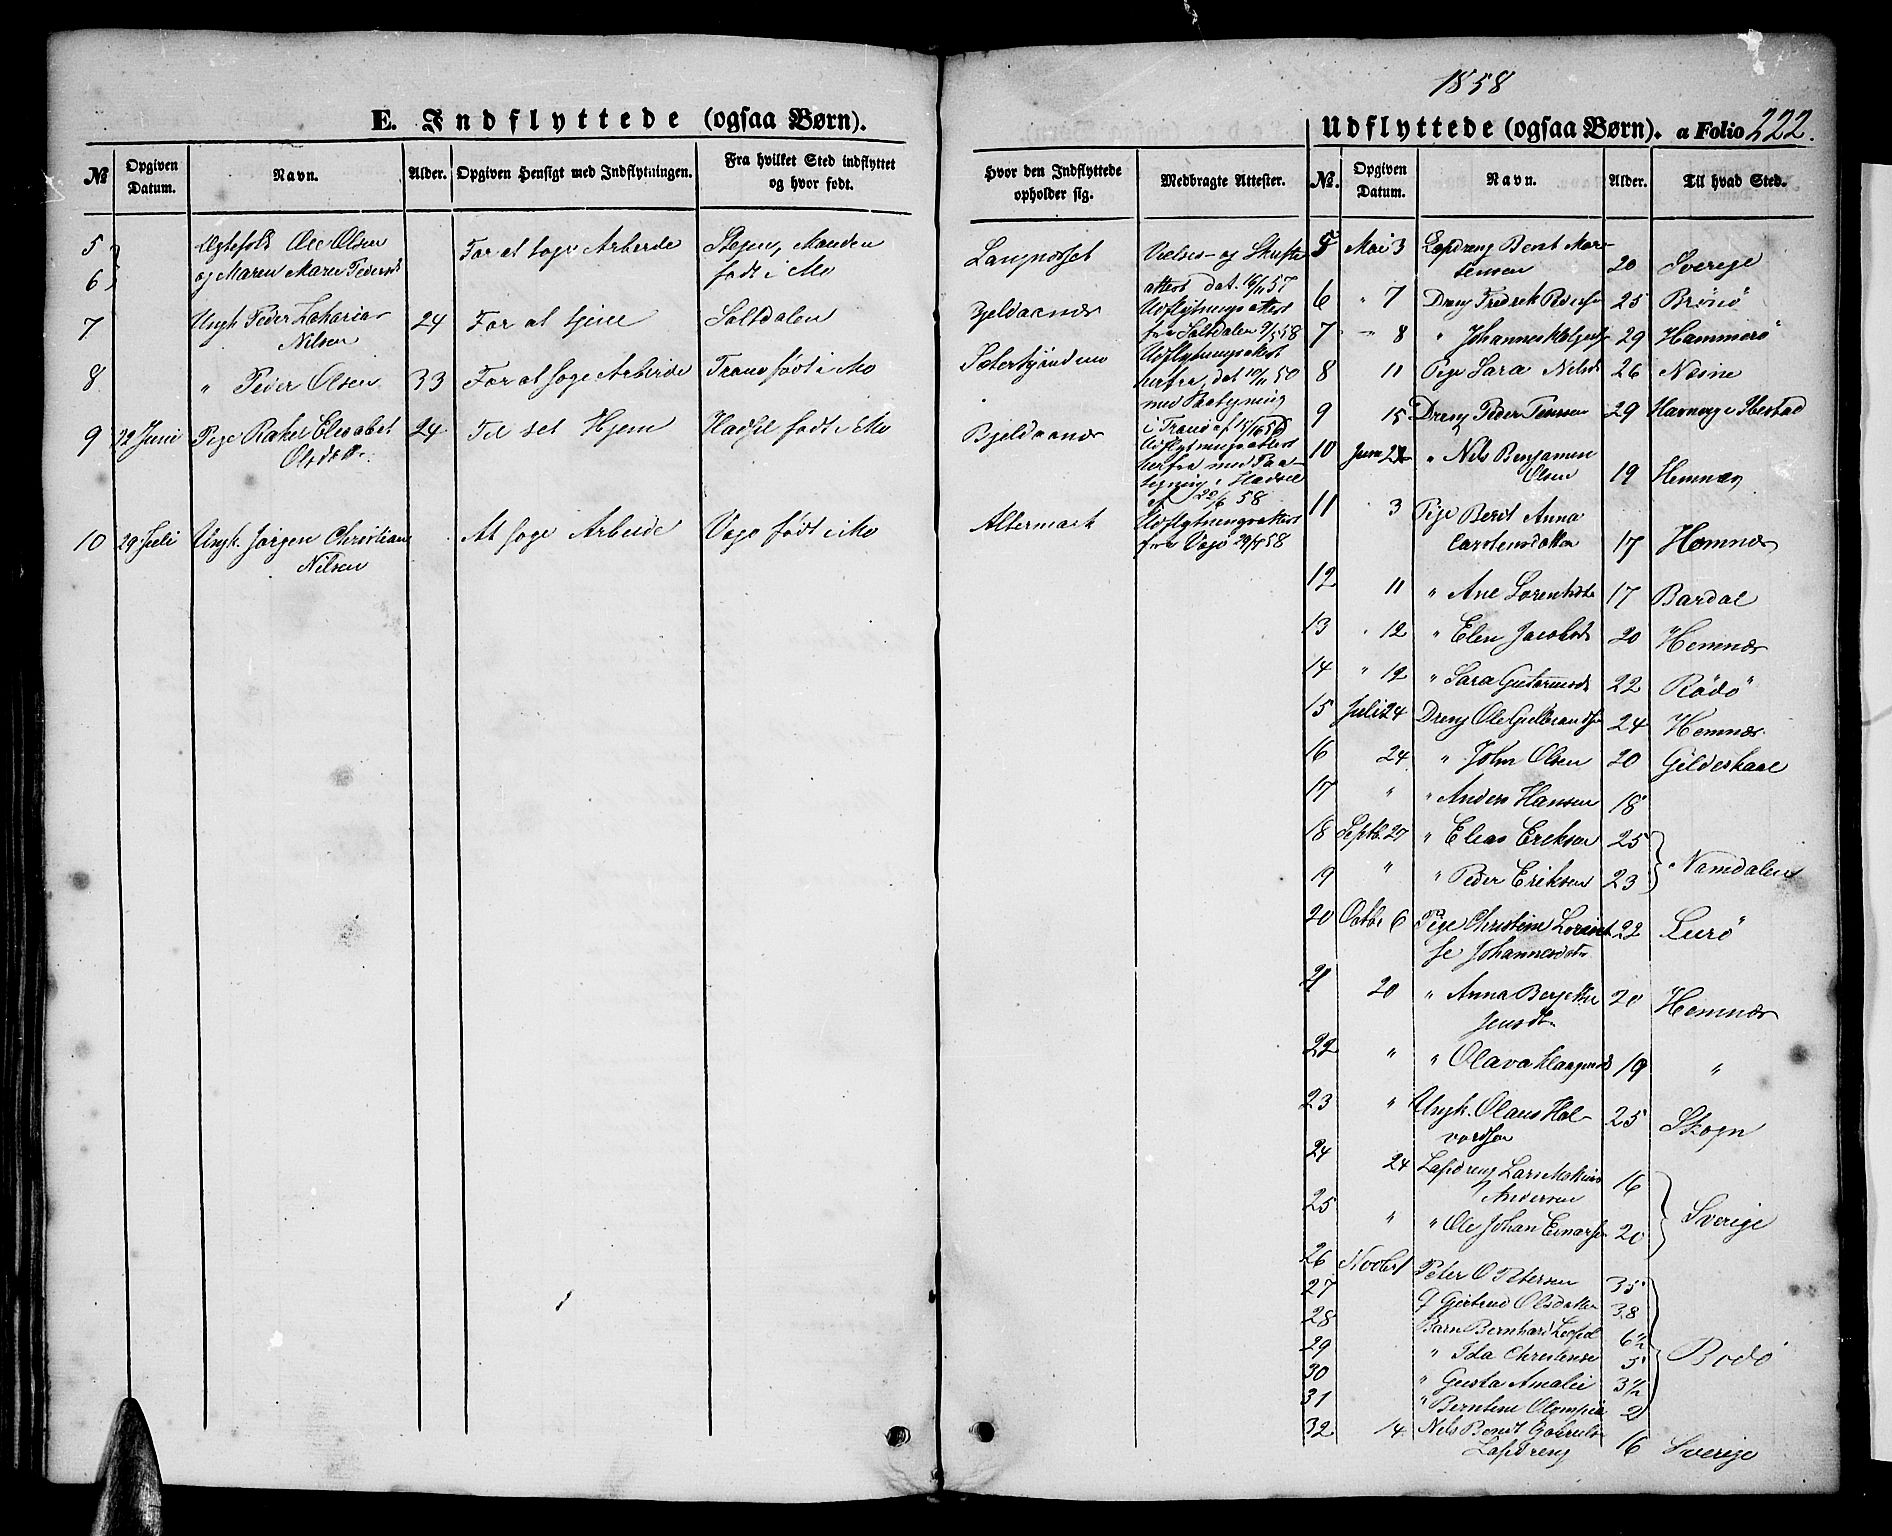 1858
E. Indflyttede (ogsaa Børn).
№ Opgiven Datum. Navn. Alder. Opgiven Hensigt med Indflytningen. Fra hvilket Sted indflyttet og hvor født.
Hvor den Indflyttede opholder sig. Medbragte Attester.
5 Ægtefolk Ole Olsen For at søge Arbeide Stegen, Manden Langnæset Vielses- og Skifte
6 og Maren Maria Pedersd født i Mo attest dat. 16/11 57
7 Ungk. Peder Zakarias 24 For at tjene Saltdalen Bjeldaanæs Udflytningsattest
Nilsen fra Saltdalen 9/5 58
8 " Peder Olsen 33 For at søge Arbeide Tranø født i Mo Udflytningsattest
herfra, dat 10/11 50
med Paategning
i Tranø af
9 22 Juni Pige Rakel Elisabet 24 Til sit Hjem Hadsel født i Mo Bjeldaanæs Udflytningsattest
Olsdatter herfra med Paa-
tegning i Hadsel
af 22/6 58
10 29 Juli Ungk. Jørgen Christian At søge Arbeide Vågø født i Mo Altermark Udflytningsattest
Nilsen fra Vågø 29/7 58
Udflyttede (ogsaa Børn). a Folio 222.
№. Opgiven Datum. Navn. Alder. Til hvad Sted.
5 Mai 3 Lapdreng Bent Mor-
tensen 20 Sverige
6 " 7 Dreng Fredrik Peders 25 Brønø
7 " 8 " Johannes 29 Hammerø
8 11 Pige Sara Nilsd 26 Næsne
9 15 Dreng Peder 29 Ibestad
10 Juni " Nils Benjamin
Olsen 19 Hemnæs
11 3 Pige Berit Anna
Carstensdatter 17 Hemnæs
12 11 " Ane Lorentsdtr 17 Bardal
13 " 12 " Elen Jacobsd 20 Hemnæs
14 " 12 " Sara 22 Rødø
15 Juli 24 Dreng Ole Gulbrands 24 Hemnæs
16 24 " John Olsen 20 Gildeskaal
17 " " Anders Hansen 18
18 Septb. 27 " Elias Eriksen 25
19 " " Peder Eriksen 23 Namdalen
20 Octbr 6 Pige Christine Lorent 22 Lurø
se Johannesdtr
21 20 " Anna Bergitte 20 Hemnæs
Jensdtr
22 " " Olava Haagensd 19 "
23 " Ungk. Olaus Hal- 25 Skogn
vorsen
24 24 Lapdreng Lars 16
Andersen
25 " " Ole Johan Einars 20 Sverige
26 Novbr 1 Peter O Petersen 35
27 Gjertrud Olsdatter 38
28 Barn Bernhard Leopol 6½
29 " Ida Christense 5 Bodø
30 " Gusta Amalie 3½
31 " Berntine Olympia 2
32 14 Nils Bendt Gabriels
Lapdreng 16 Sverige